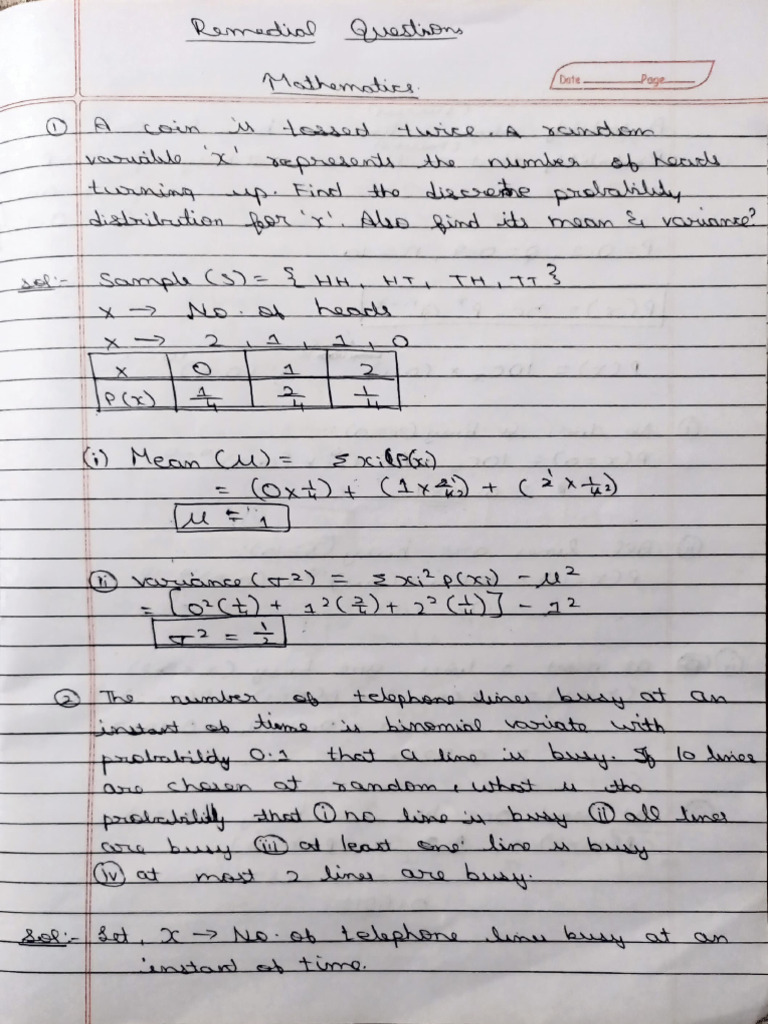 Remedial Questions
Mathematics.
Date Page
① A coin is tossed twice. A random
variable 'x' represents the number of heads
turning up. Find the discrete probability
distribution for 'x'. Also find its mean & variance?
Sol:- Sample (S) = { HH, HT, TH, TT }
x → No. of heads
x → 2, 1, 1, 0
x 0 1 2
P(x) 1/4 2/4 1/4
(i) Mean (μ) = Σxi P(xi)
= (0 × 1/4) + (1 × 2/4) + (2 × 1/4)
μ = 1
(ii) variance (σ²) = Σxi² p(xi) - μ²
= [0²(1/4) + 1²(2/4) + 2²(1/4)] - 1²
σ² = 1/2
② The number of telephone lines busy at an
instant of time is binomial variate with
probability 0.1 that a line is busy. If 10 lines
are chosen at random, what is the
probability that (i) no line is busy (ii) all lines
are busy (iii) at least one line is busy
(iv) at most 2 lines are busy.
Sol:- Let, x → No. of telephone lines busy at an
instant of time.